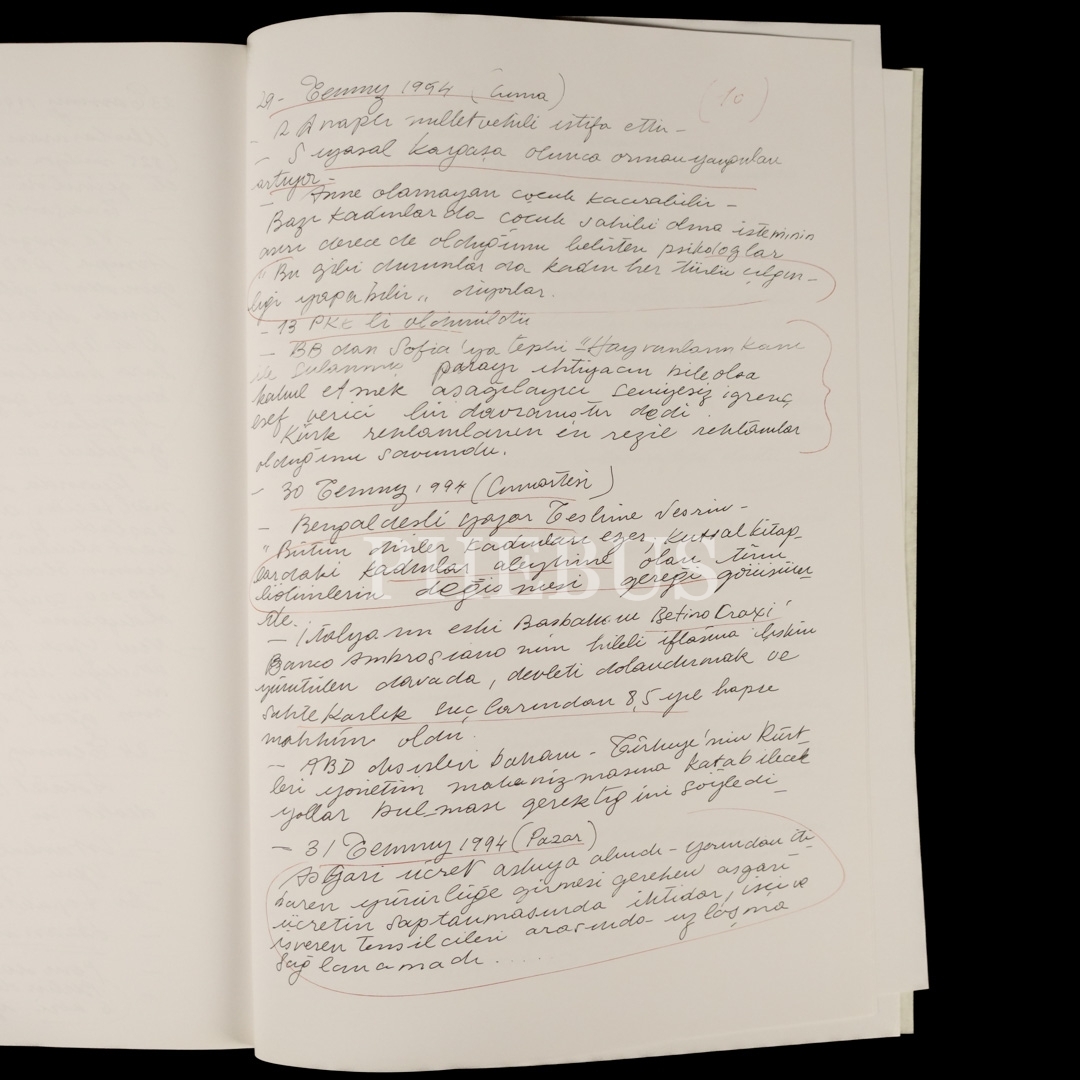 29- Temmuz 1994 (Cuma) (10)
- 2 Anaplı milletvekili istifa etti -
- Siyasal kargaşa olunca orman yangınları
artıyor -
- Anne olamayan çocuk kaçırabilir -
Bazı kadınlar da çocuk sahibi olma isteminin
aşırı derece de olduğunu belirten psikologlar
"Bu gibi durumlar da kadın her türlü çılgın-
lığı yapabilir" diyorlar.
- 13 PKK li öldürüldü
- BB dan Sofia'ya tepki "Hayvanların kanı
ile sulanmış parayı ihtiyacın bile olsa
kabul etmek aşağılayıcı seviyesiz iğrenç
esef verici bir davranıştır dedi.
Kürk reklamlarının en rezil reklamlar
olduğunu savundu.
- 30 Temmuz 1994 (Cumartesi)
- Bengaldeşli yazar Teslime Nesrin -
"Bütün dinler kadınları ezer kutsal kitap-
lardaki kadınlar aleyhine olan tüm
bölümlerin değişmesi gereği görüşün-
de.
- İtalya'nın eski Başbakanı Betino Craxi
Banco Ambrosiano'nun hileli iflasına ilişkin
yürütülen davada, devleti dolandırmak ve
sahtekarlık suçlarından 8,5 yıl hapse
mahkum oldu.
- ABD dışişleri bakanı - Türkiye'nin Kürt
leri yönetim mekanizmasına katabilecek
yollar bulması gerektiğini söyledi -
- 31 Temmuz 1994 (Pazar)
Asgari ücret askıya alındı - yarından iti
baren yürürlüğe girmesi gereken asgari
ücretin saptanmasında iktidar, işçi ve
işveren temsilcileri arasında uzlaşma
sağlanamadı....
PHEBUS